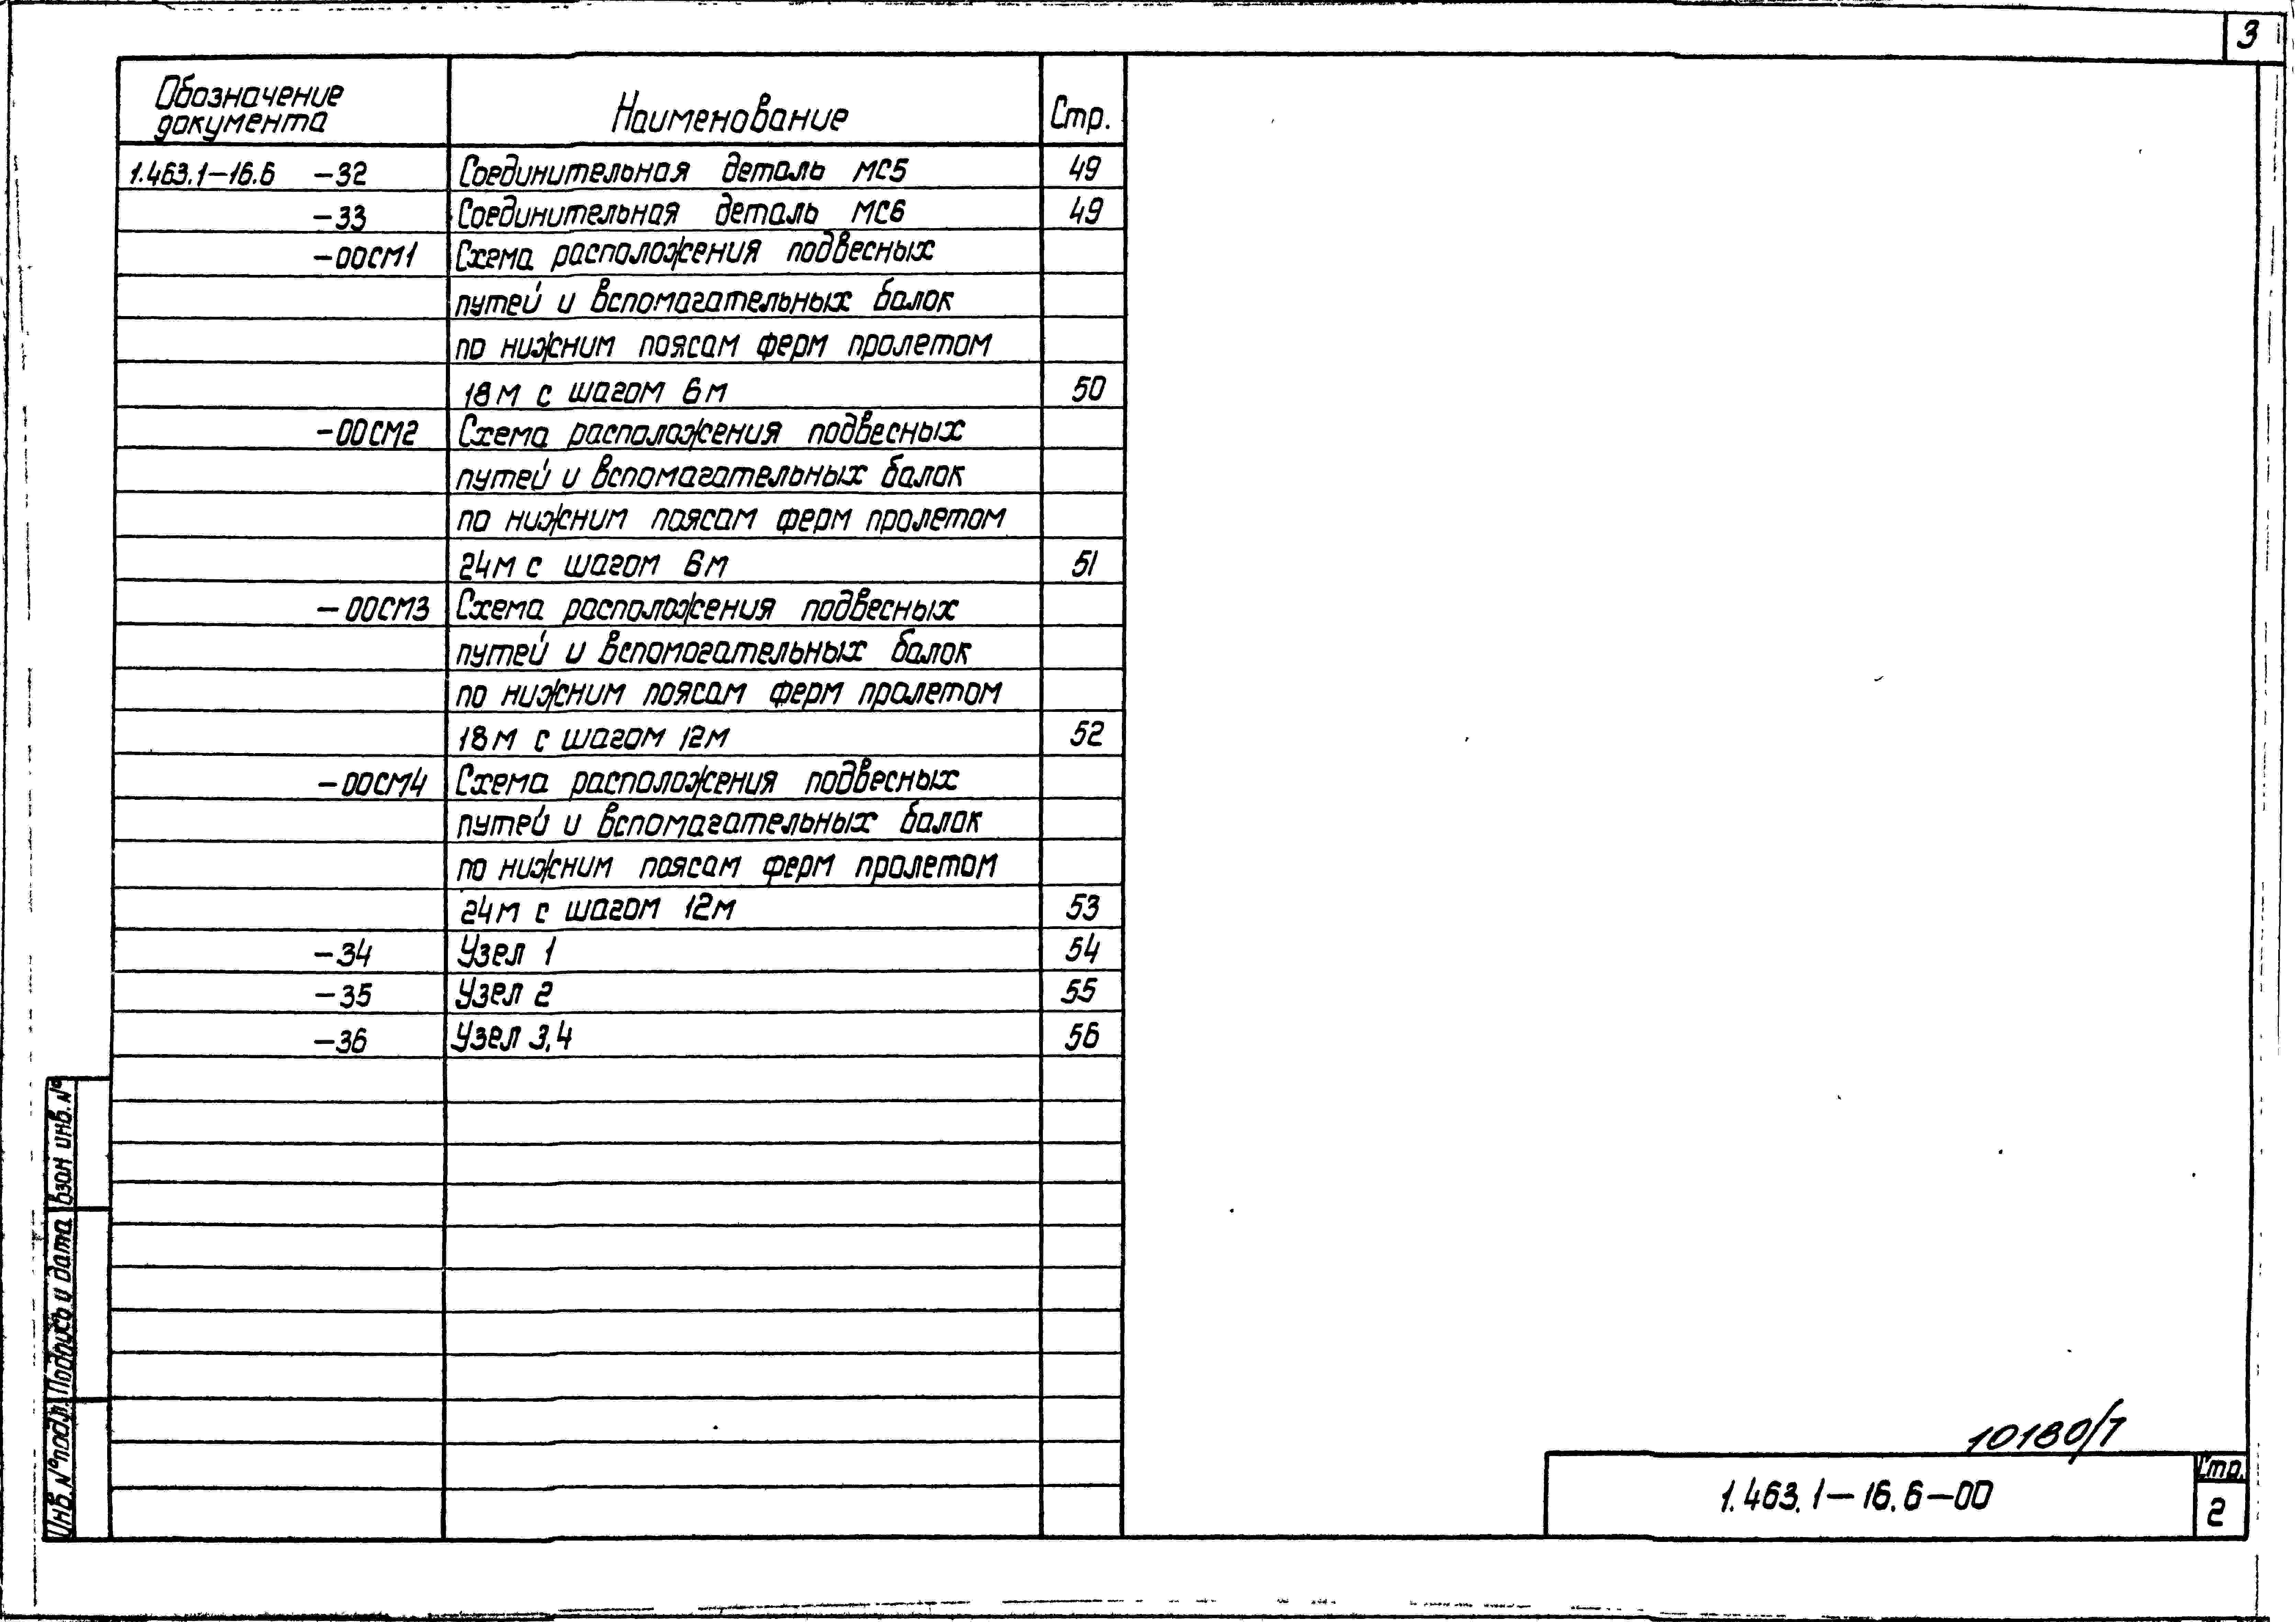 3
Обозначение
документа
Наименование
Стр.
1.463.1-16.6 -32 Соединительная деталь МС5 49
-33 Соединительная деталь МС6 49
-00СМ1 Схема расположения подвесных
путей и вспомагательных балок
по нижним поясам ферм пролетом
18м с шагом 6м 50
-00СМ2 Схема расположения подвесных
путей и вспомагательных балок
по нижним поясам ферм пролетом
24м с шагом 6м 51
-00СМ3 Схема расположения подвесных
путей и вспомогательных балок
по нижним поясам ферм пролетом
18м с шагом 12м 52
-00СМ4 Схема расположения подвесных
путей и вспомагательных балок
по нижним поясам ферм пролетом
24м с шагом 12м 53
-34 Узел 1 54
-35 Узел 2 55
-36 Узел 3,4 56
Взан инв. №
Подпись и дата
Инв. № подл.
10180/7
1.463.1-16.6-00
Стр.
2